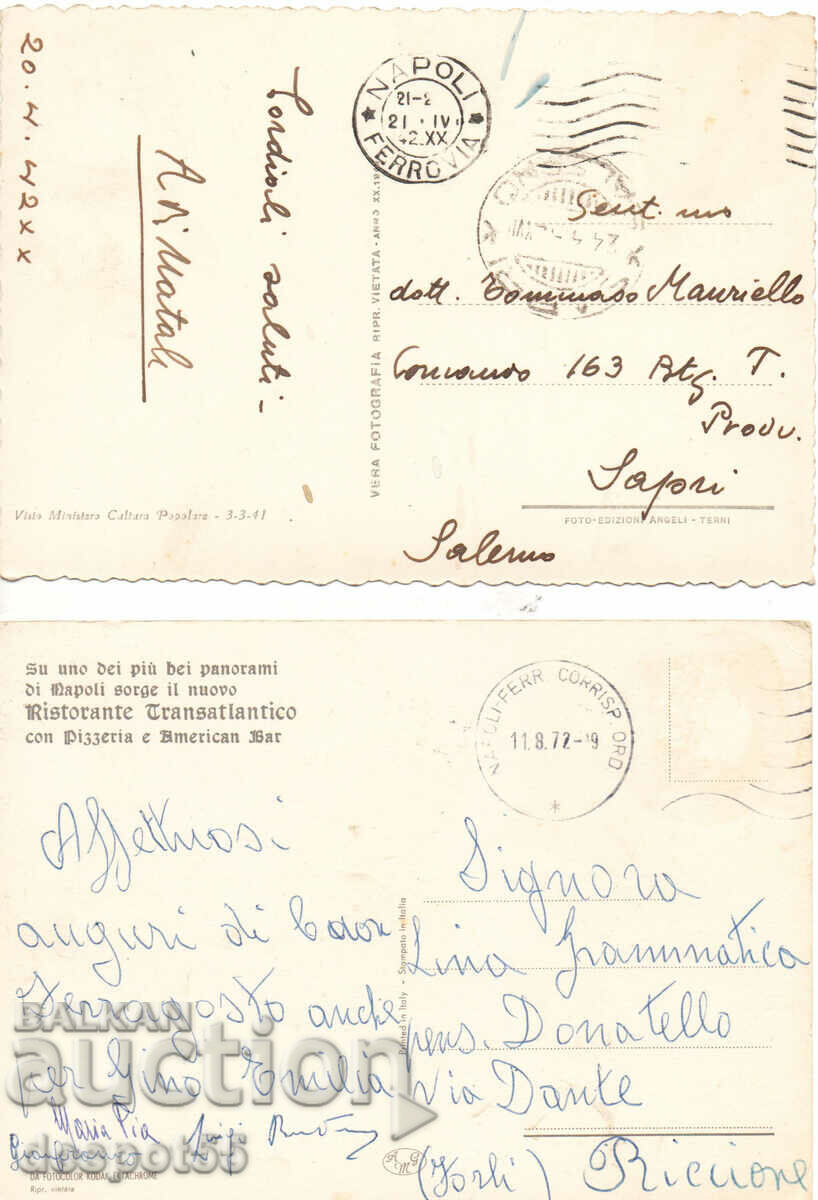 20.4.42xx
Cordiali saluti -
NAPOLI
21 . IV
42.XX
FERROVIA
VERA FOTOGRAFIA RIPR. VIETATA - ANNO XX.19
Gent.mo
dott. Tommaso Mauriello
Comando 163 Btg. T.
Provv.
Sapri
Salerno
Visto Ministero Cultura Popolare - 3-3-41
FOTO-EDIZIONI ANGELI - TERNI
Su uno dei più bei panorami
di Napoli sorge il nuovo
Ristorante Transatlantico
con Pizzeria e American Bar
NAPOLI-FERR. CORRISP. ORD.
11.8.72-9
Affettuosi
auguri di buon
Ferragosto anche
per Gino Emilia
Maria Pia
Gianfranco Luigi
DA FOTOCOLOR KODAK EKTACHROME
Ripr. vietata
Printed in Italy - Stampato in Italia
Signora
Lina Grammatica
pens. Donatello
Via Dante
(Forlì) Riccione
BALKAN
auction
despot55